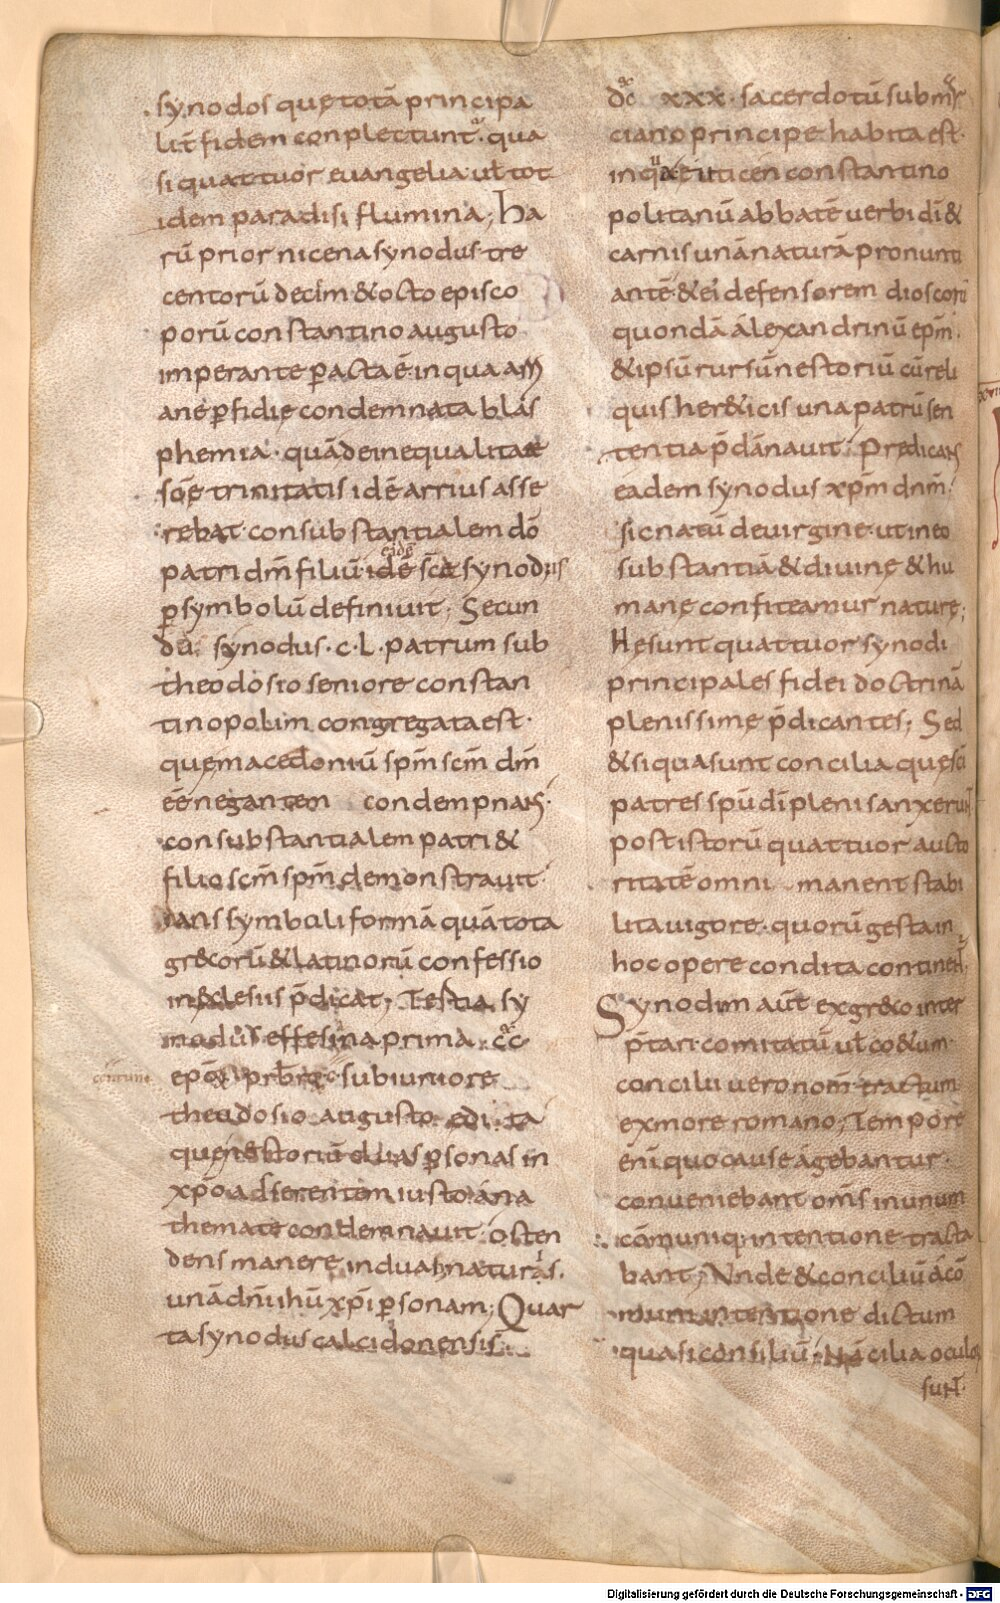 synodos quę totā principa
lit̄ fidem conplectunt̄ qua
si quattuor euangelia ut̄ tot
idem paradisi flumina; Ha
rū prior nicena synodus tre
centorū decim & octo episco
porū constantino augusto
imperante p̄acta ē in qua arri
ane p̄fidię condemnata blas
phemia quā de inequalitate
sc̄ę trinitatis idē arrius asse
rebat consubstantialem dō
patri dm̄ filiū idē sc̄a synodus
p̄ symbolū definiuit; Secun
da synodus c.L. patrum sub
theodosio seniore constan
tinopolim congregata est.
quę macedoniū spm̄ scm̄ dm̄
eē negantem condempnans.
consubstantialem patri &
filio scm̄ spm̄ demonstrauit
dans symboli formā quā tota
gr&corū & latinorū confessio
in ęclesiis p̄dicat; Tertia sy
nodus effesina prima .cc.
epōꝝ sub iuniore
theodosio augusto edita
quę nestoriū duas p̄sonas in
xp̄o adserentem iusto ana
themate condemnauit osten
dens manere in duab; naturis
unā dn̄i ihū xp̄i p̄sonam; Quar
ta synodus calcidonensis
dc xxx. sacerdotū sub mar
ciano principe habita est.
in qua euticen constantino
politanū abbatē uerbi dī &
carnis unā naturā pronunti
antē & ei defensorem dioscorū
quondā alexandrinū ep̄m.
& ipsū rursū nestoriū cū reli
quis her&icis una patrū sen
tentia p̄dānauit; Predicans
eadem synodus xp̄m dnm̄
sic natū de uirgine ut in eo
substantiā & diuinę & hu
manę confiteamur naturę;
Hę sunt quattuor synodi
principales fidei doctrinā
plenissime p̄dicantes; Sed
& si qua sunt concilia quę sc̄i
patres spū dī pleni sanxerunt
post istorū quattuor aucto
ritatē omni manent stabi
lita uigore. quorū gesta in
hoc opere condita continent̄
Synodum aut̄ ex gr&co inter
p̄tari comitatū ut̄ co&um
concilii uero nom̄ tractum
ex more romano; Tempore
enī quo cause agebantur
conueniebant oms̄ in unum
cōmuniq; intentione tracta
bant; Vnde & conciliū a cō
muni intentione dictum
quasi consiliū. Nā cilia oculor̄
sunt.